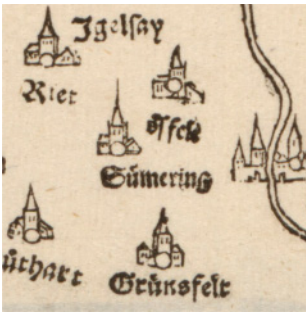 Igelsay
Riet
offck
Sümering
üthart
Grünsfelt